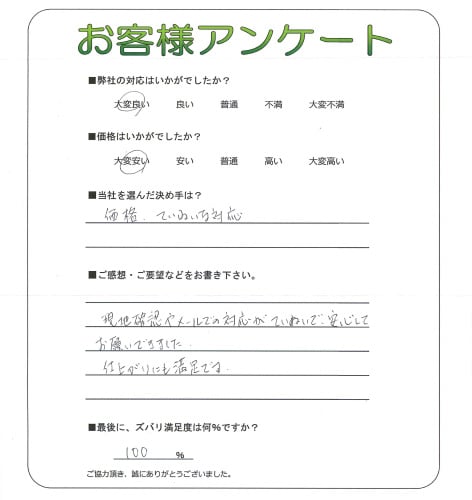 お客様アンケート
■弊社の対応はいかがでしたか？
大変良い 良い 普通 不満 大変不満
■価格はいかがでしたか？
大変安い 安い 普通 高い 大変高い
■当社を選んだ決め手は？
価格、ていねいな対応
■ご感想・ご要望などをお書き下さい。
現地確認やメールでの対応がていねいで、安心して
お願いできました。
仕上がりにも満足です。
■最後に、ズバリ満足度は何％ですか？
100 ％
ご協力頂き、誠にありがとうございました。